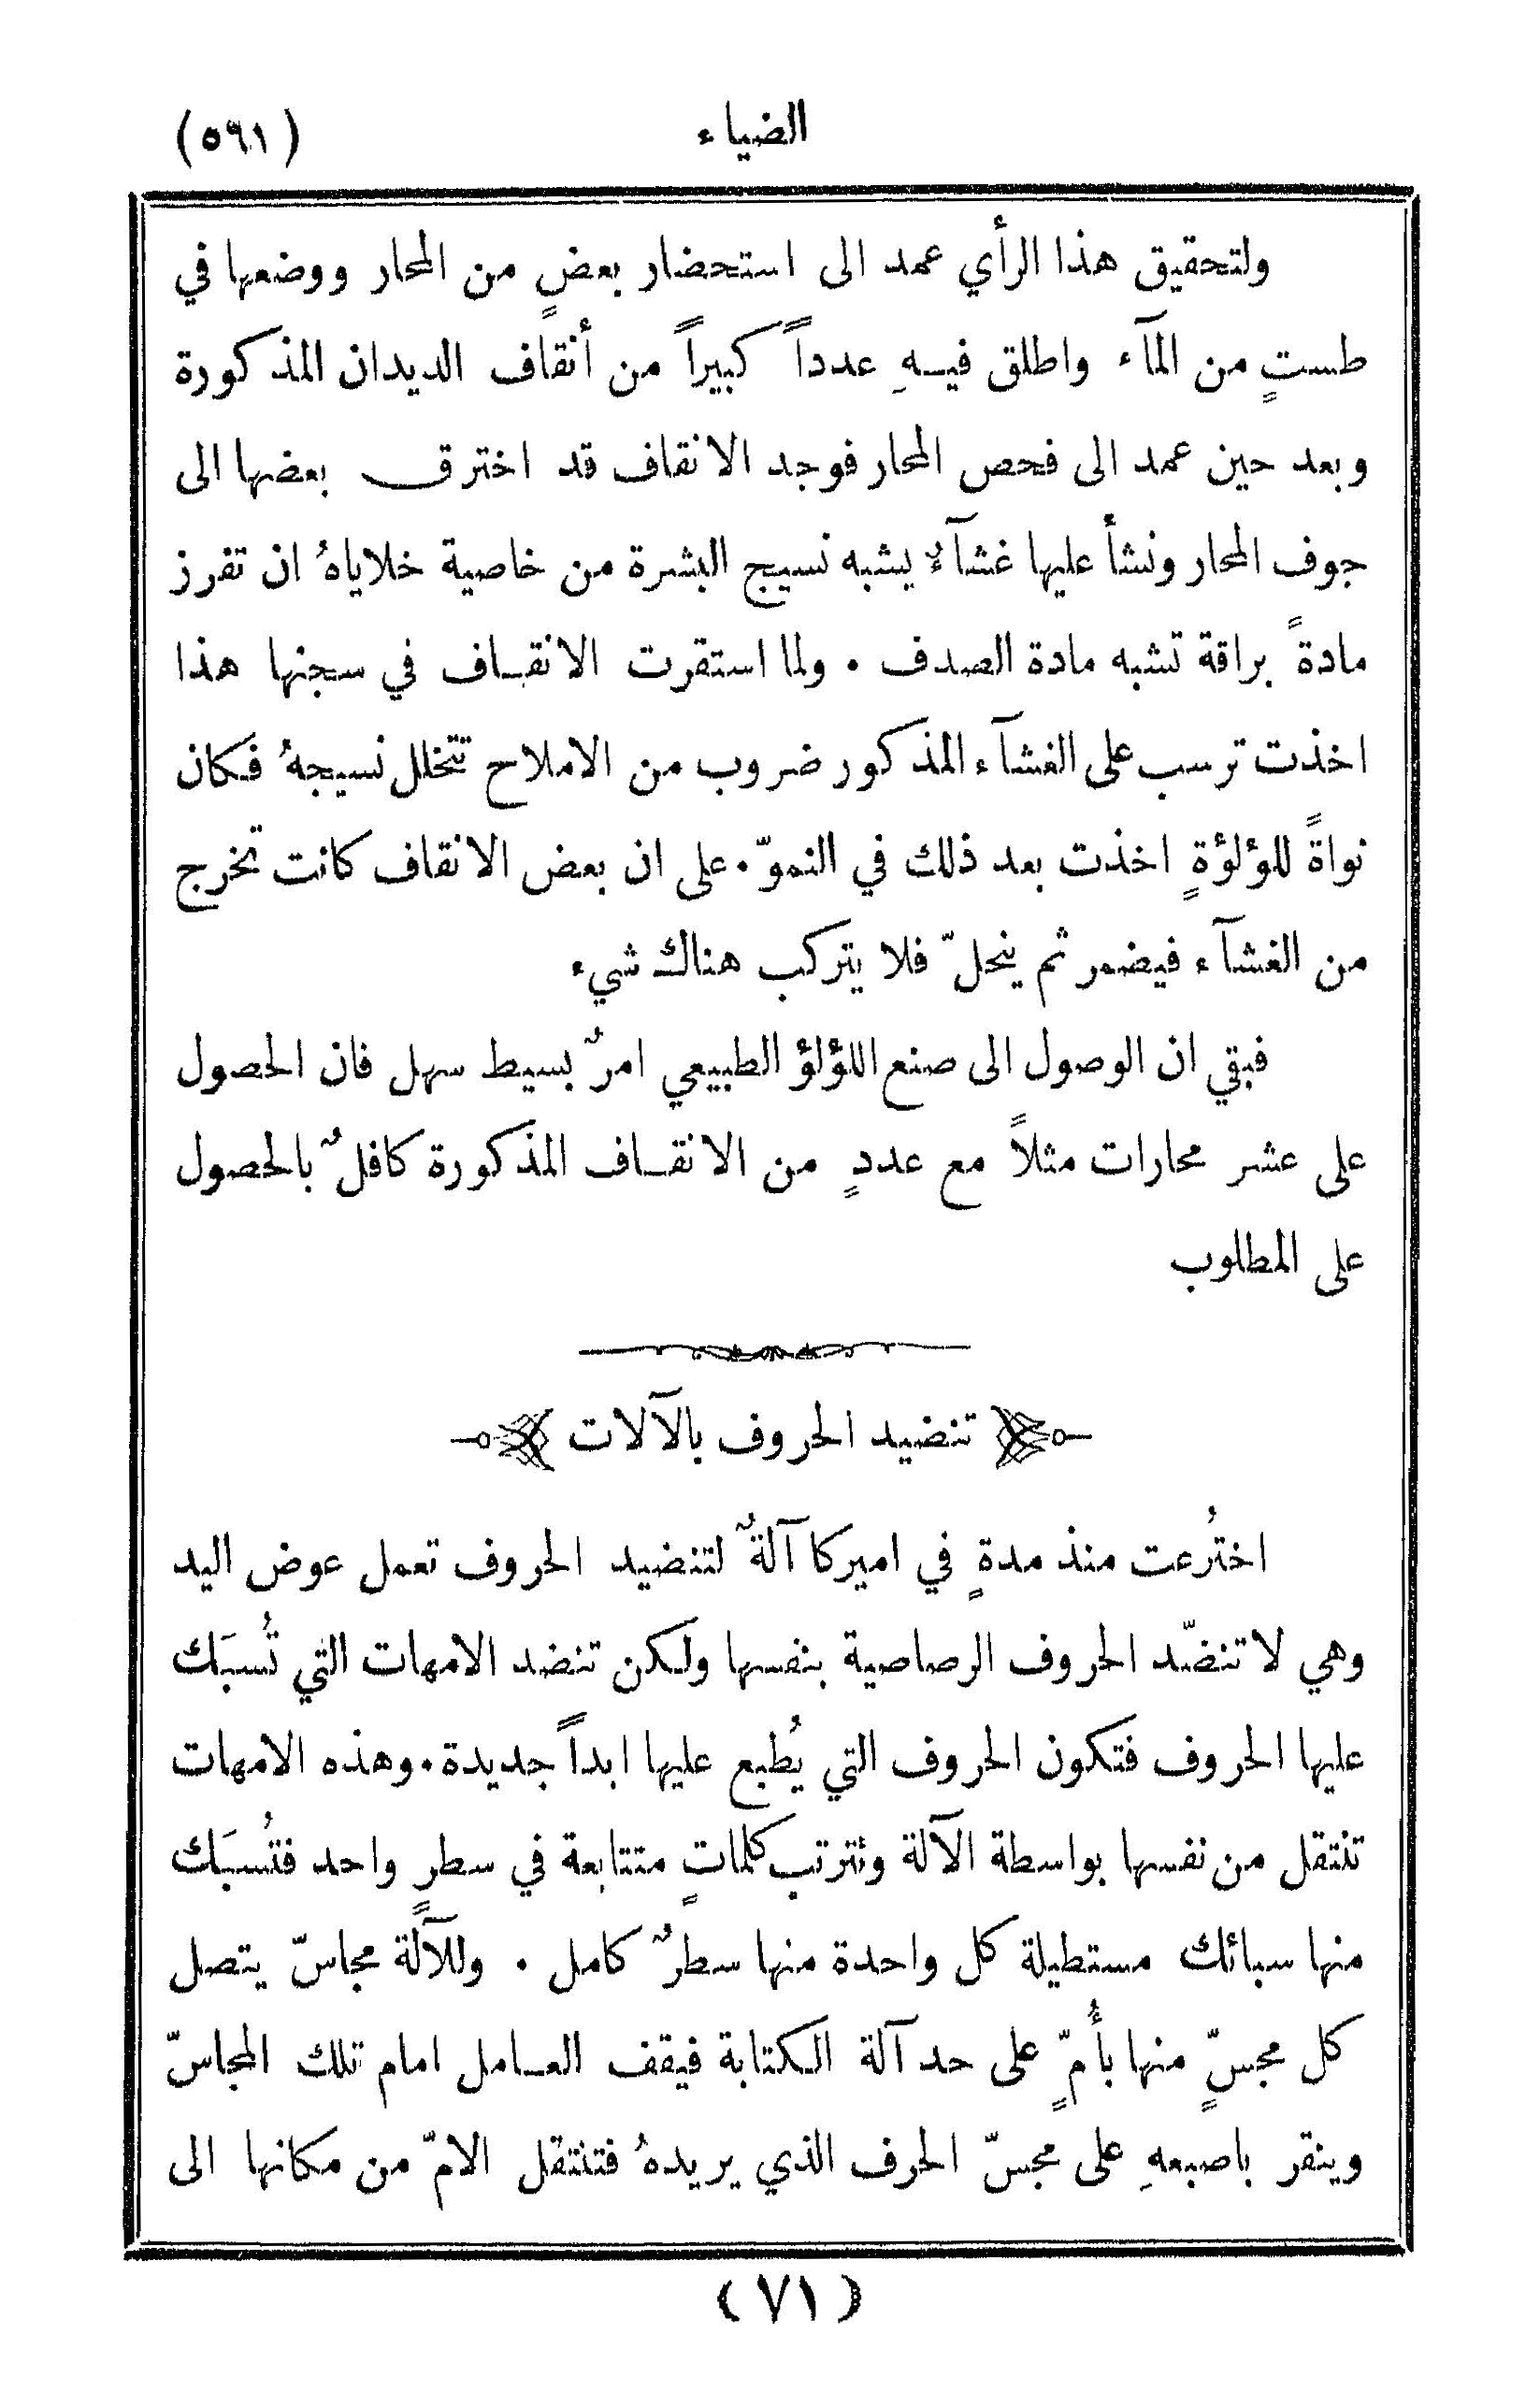 الضياء (٥٦١)
ولتحقيق هذا الرأي عمد الى استحضار بعضٍ من المحار ووضعها في
طستٍ من المآء واطلق فيهِ عدداً كبيراً من أنقاف الديدان المذكورة
وبعد حين عمد الى فحص المحار فوجد الانقاف قد اخترق بعضها الى
جوف المحار ونشأ عليها غشآءٌ يشبه نسيج البشرة من خاصية خلاياهُ ان تفرز
مادةً براقة تشبه مادة الصدف . ولما استقرت الانقاف في سجنها هذا
اخذت ترسب على الغشآء المذكور ضروب من الاملاح تتخلل نسيجهُ فكان
نواةً للؤلؤةٍ اخذت بعد ذلك في النموّ . على ان بعض الانقاف كانت تخرج
من الغشآء فيضمر ثم ينحلّ فلا يتركب هناك شيء
فبقي ان الوصول الى صنع اللؤلؤ الطبيعي امرٌ بسيط سهل فان الحصول
على عشر محارات مثلاً مع عددٍ من الانقاف المذكورة كافلٌ بالحصول
على المطلوب
تنضيد الحروف بالآلات
اختُرعت منذ مدةٍ في اميركا آلةٌ لتنضيد الحروف تعمل عوض اليد
وهي لا تنضّد الحروف الرصاصية بنفسها ولكن تنضد الامهات التي تُسبَك
عليها الحروف فتكون الحروف التي يُطبع عليها ابداً جديدة . وهذه الامهات
تنتقل من نفسها بواسطة الآلة وتترتب كلماتٍ متتابعة في سطرٍ واحد فتُسبَك
منها سبائك مستطيلة كل واحدة منها سطرٌ كامل . وللآلة مجاسّ يتصل
كل مجسٍّ منها بأُمٍّ على حد آلة الكتابة فيقف العامل امام تلك المجاسّ
وينقر باصبعهِ على مجسّ الحرف الذي يريدهُ فتنتقل الامّ من مكانها الى
(٧١)